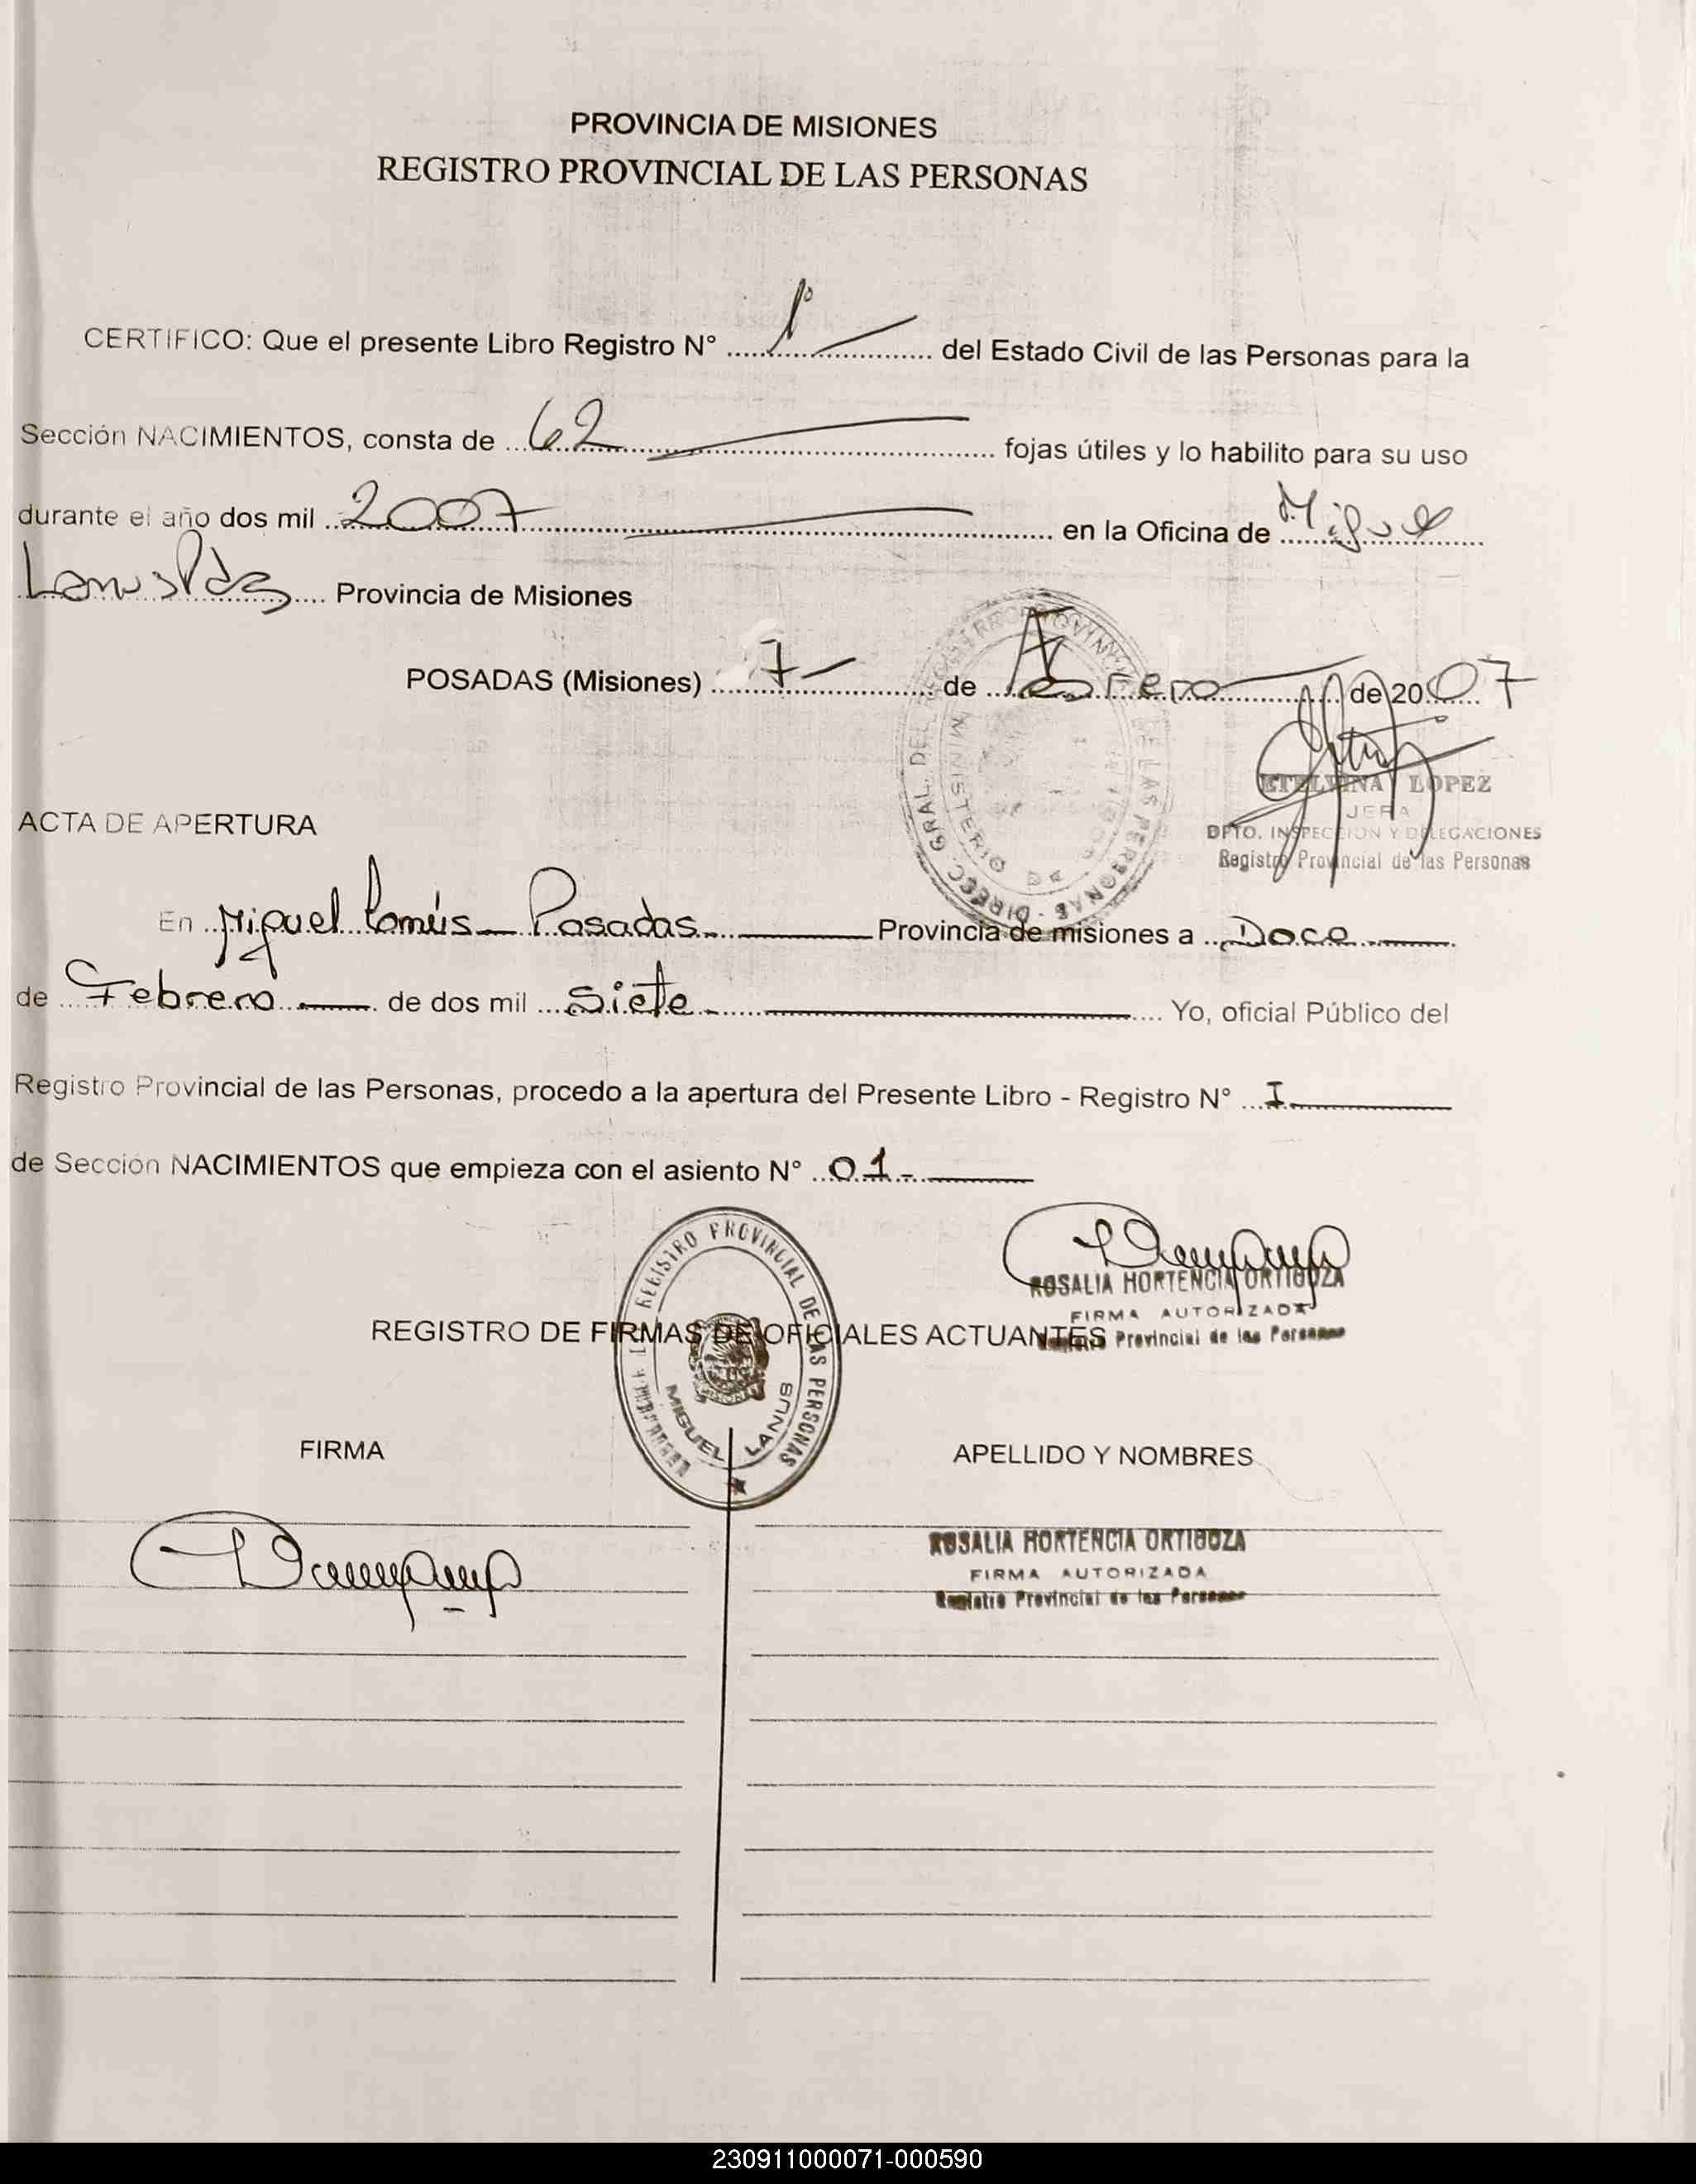 PROVINCIA DE MISIONES
REGISTRO PROVINCIAL DE LAS PERSONAS
CERTIFICO: Que el presente Libro Registro N° 1° del Estado Civil de las Personas para la
Sección NACIMIENTOS, consta de 62 fojas útiles y lo habilito para su uso
durante el año dos mil 2007 en la Oficina de Miguel
Lanus Pdas Provincia de Misiones
POSADAS (Misiones) 7 de Febrero de 2007
ETELVINA LOPEZ
JEFA
DPTO. INSPECCION Y DELEGACIONES
Registro Provincial de las Personas
ACTA DE APERTURA
En Miguel Lanús Posadas Provincia de misiones a Doce
de Febrero de dos mil Siete Yo, oficial Público del
Registro Provincial de las Personas, procedo a la apertura del Presente Libro - Registro N° I
de Sección NACIMIENTOS que empieza con el asiento N° 01
REGISTRO PROVINCIAL DE LAS PERSONAS
MIGUEL LANUS
ROSALIA HORTENCIA ORTIGOZA
FIRMA AUTORIZADA
Registro Provincial de las Personas
REGISTRO DE FIRMAS DE OFICIALES ACTUANTES
FIRMA APELLIDO Y NOMBRES
ROSALIA HORTENCIA ORTIGOZA
FIRMA AUTORIZADA
Registro Provincial de las Personas
230911000071-000590